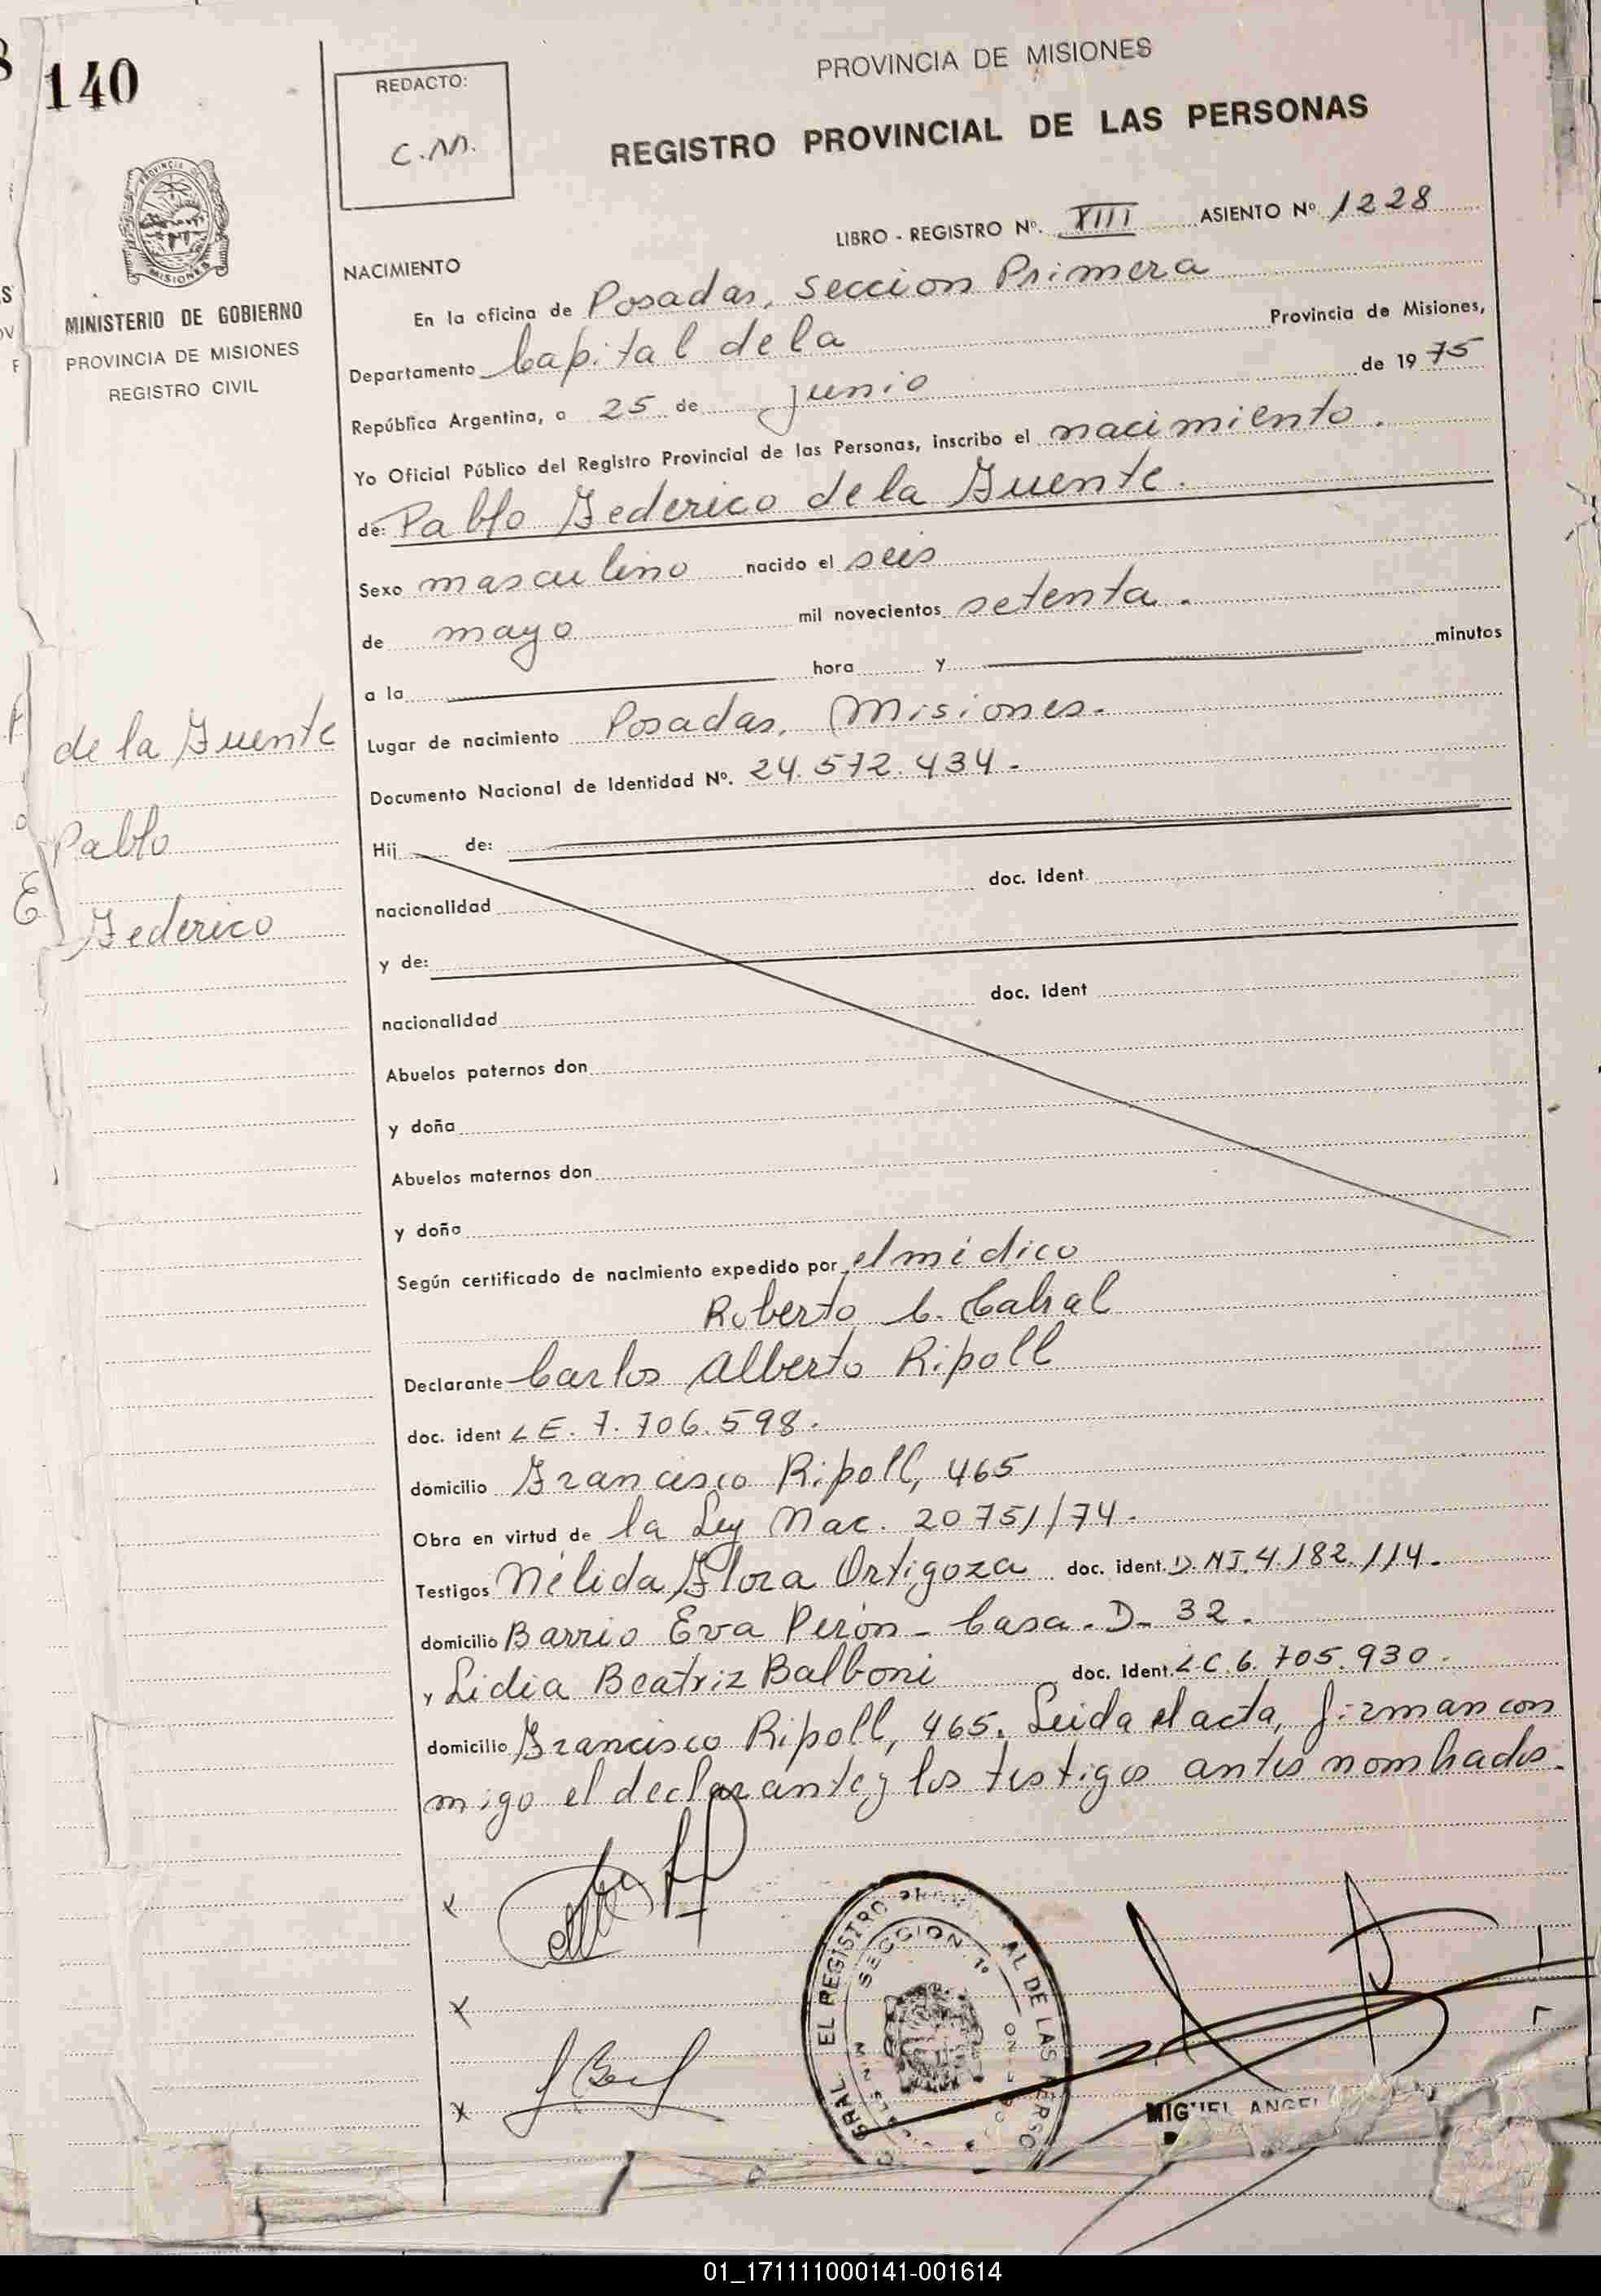 140
REDACTO:
C.M.
PROVINCIA DE MISIONES
REGISTRO PROVINCIAL DE LAS PERSONAS
LIBRO - REGISTRO Nº. XIII ASIENTO Nº 1228
PROVINCIA
MISIONES
MINISTERIO DE GOBIERNO
PROVINCIA DE MISIONES
REGISTRO CIVIL
NACIMIENTO
En la oficina de Posadas, Seccion Primera
Departamento Capital de la Provincia de Misiones,
República Argentina, a 25 de junio de 1975
Yo Oficial Público del Registro Provincial de las Personas, inscribo el nacimiento.
de: Pablo Federico de la Fuente.
Sexo masculino nacido el seis
de mayo mil novecientos setenta.
a la hora y minutos
Lugar de nacimiento Posadas, Misiones.
Documento Nacional de Identidad Nº. 24.572.434.-
de la Fuente
Pablo
Federico
Hij de:
nacionalidad doc. ident.
y de:
nacionalidad doc. ident
Abuelos paternos don
y doña
Abuelos maternos don
y doña
Según certificado de nacimiento expedido por el médico
Roberto C. Cabral
Declarante Carlos Alberto Ripoll
doc. ident L E. 7.706.598.
domicilio Francisco Ripoll, 465
Obra en virtud de la Ley Nac. 20751/74.
Testigos Nélida Flora Ortigoza doc. ident. D.NI.4.182.114.
domicilio Barrio Eva Perón - Casa - D - 32.
y Lidia Beatriz Balboni doc. ident. L.C 6.705.930.
domicilio Francisco Ripoll, 465. Leida el acta, firman con
migo el declarante y los testigos antes nombrados.
x
x
x
GRAL. EL REGISTRO AL DE LAS PERSO
SECCION 1º
MIGUEL ANGEL
01_171111000141-001614